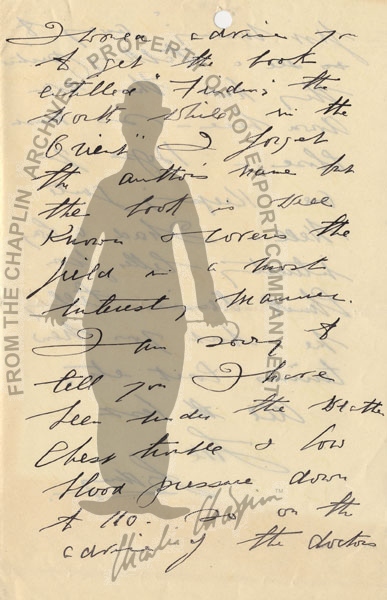 I would advise you
to get the book
entitled "Finding the
Worth While in the
Orient" I forget
the authors name but
the book is well
known & covers the
field in a most
interesting manner.
I am sorry to
tell you I have
been under the weather
Chest trouble & low
blood pressure down
to 110. on the
advice of the doctors
FROM THE CHAPLIN ARCHIVES, PROPERTY OF ROY EXPORT COMPANY EST
Charlie Chaplin™